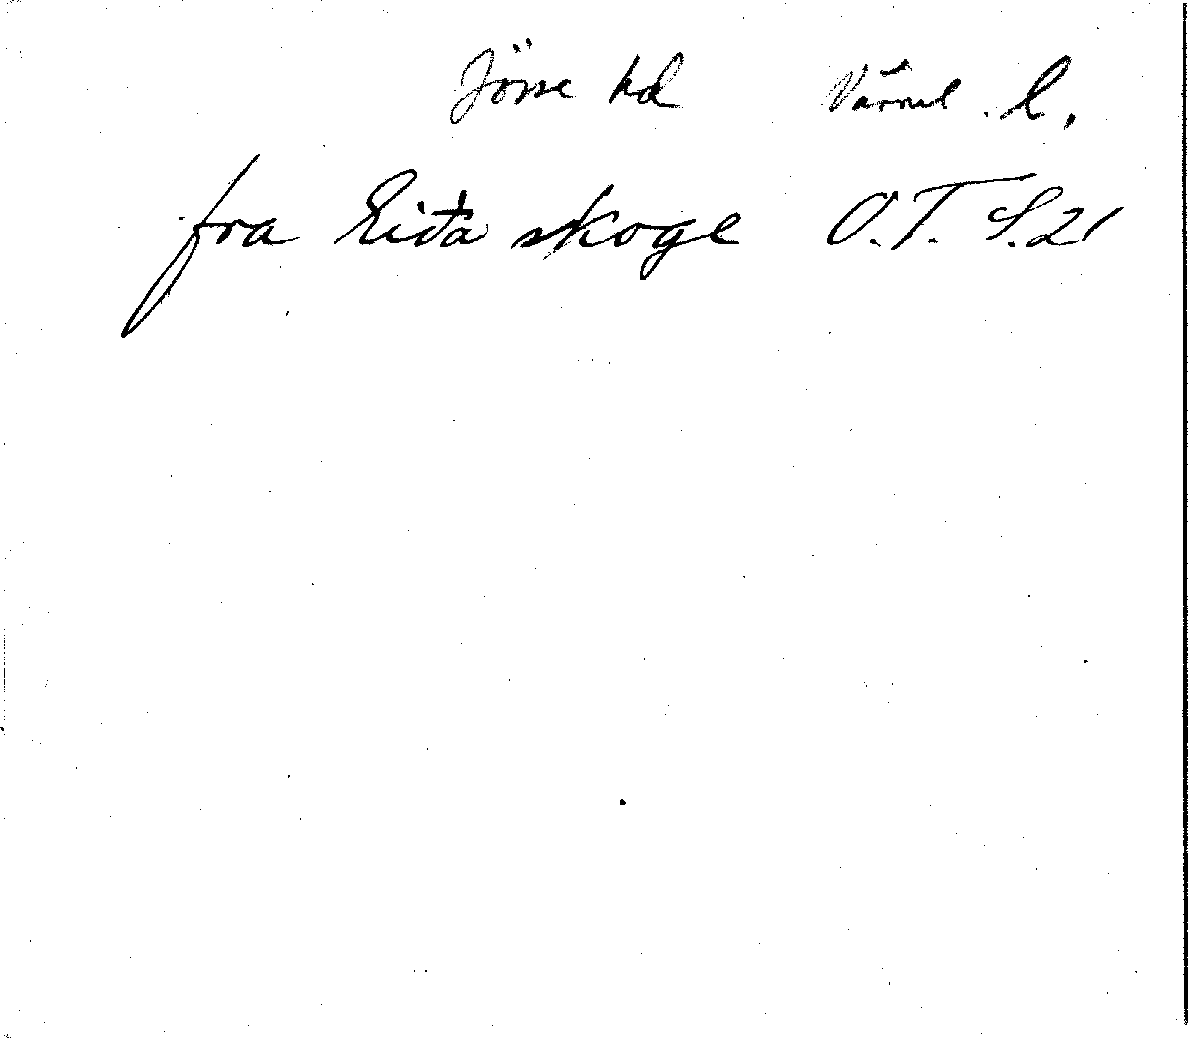 Jösse hd Värml. l.
fra Eiða skoge O.T. S.21